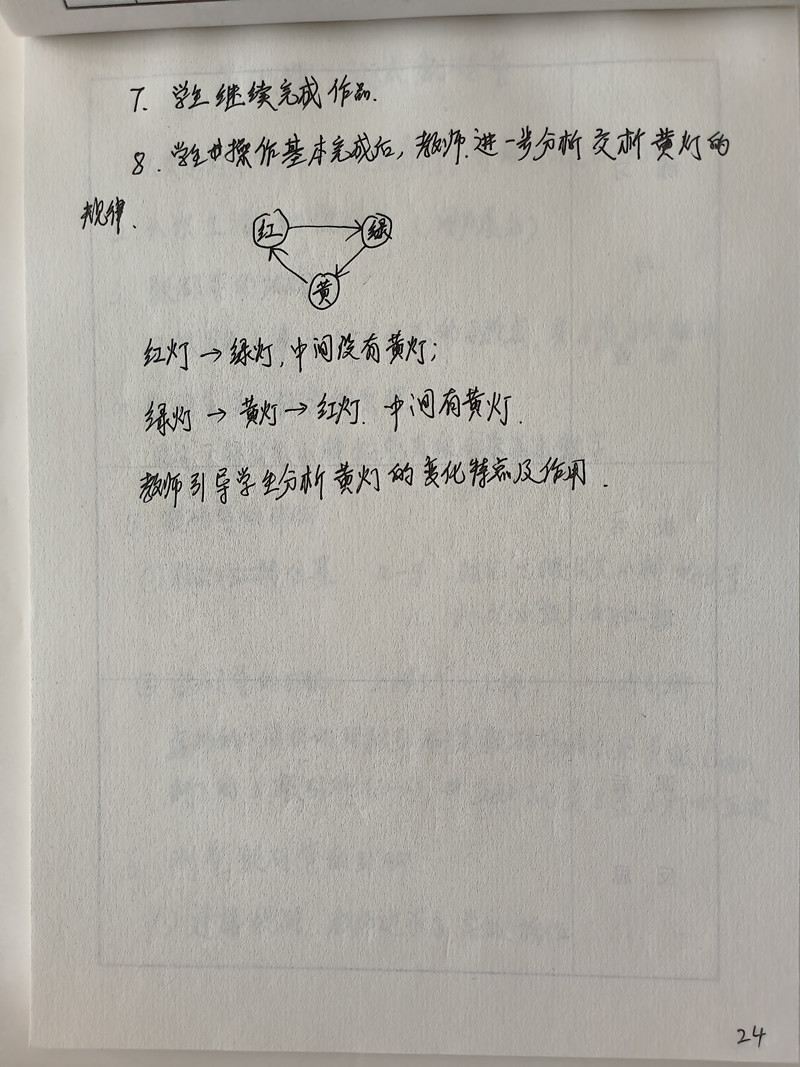 7. 学生继续完成作品.
8. 学生操作基本完成后, 教师进一步分析交析黄灯的
规律.
红 绿
黄
红灯→绿灯, 中间没有黄灯;
绿灯→黄灯→红灯. 中间有黄灯.
教师引导学生分析黄灯的变化特点及作用.
24